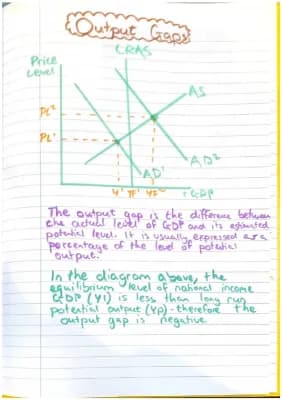 Output Gaps
LRAS
Price
Level
AS
PL²
PL'
AD'
AD²
Y' YF Y²
rGDP
The output gap is the difference between
the actual level of GDP and its estimated
potential level. It is usually expressed as a
percentage of the level of potential
output.
In the diagram above, the
equilibrium level of national income
GDP (Y1) is less than long run
potential output (Yp) - therefore the
output gap is negative